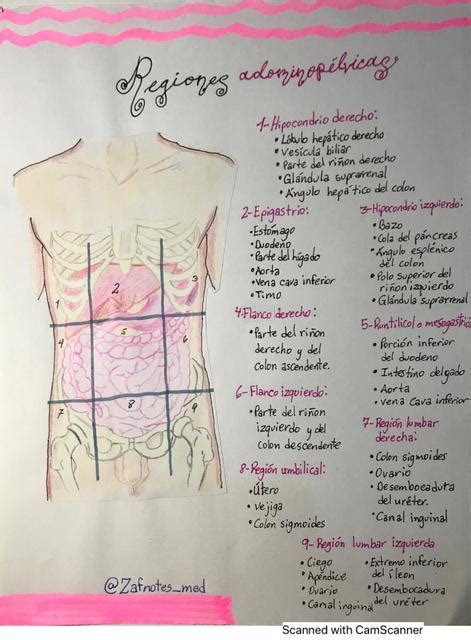 Regiones abominopélvicas
1-Hipocondrio derecho:
• Lóbulo hepático derecho
• Vesícula biliar
• Parte del riñon derecho
• Glándula suprarrenal
• Ángulo hepático del colon
2-Epigastrio:
• Estómago
• Duodeno
• Parte del hígado
• Aorta
• Vena cava inferior
• Timo
3-Hipocondrio izquierdo:
• Bazo
• Cola del páncreas
• Ángulo esplénico
del colon
• Polo superior del
riñon izquierdo
• Glándula suprarrenal
4-Flanco derecho:
• Parte del riñon
derecho y del
colon ascendente.
5-Puntilicol o mesogastrio
• Porción inferior
del duodeno
• Intestino delgado
• Aorta
• vena Cava inferior
6-Flanco izquierdo:
• Parte del riñon
izquierdo y del
colon descendente
7-Región lumbar
derecha:
• Colon sigmoides
• Ovario
• Desembocadura
del uréter.
• Canal inguinal
8-Región umbilical:
• Útero
• Vejiga
• Colon sigmoides
9-Región lumbar izquierda
• Ciego
• Apéndice
• Ovario
• Canal inguinal
• Extremo inferior
del íleon
• Desembocadura
del uréter
1
2
3
4
5
6
7
8
9
@Zafnotes_med
Scanned with CamScanner